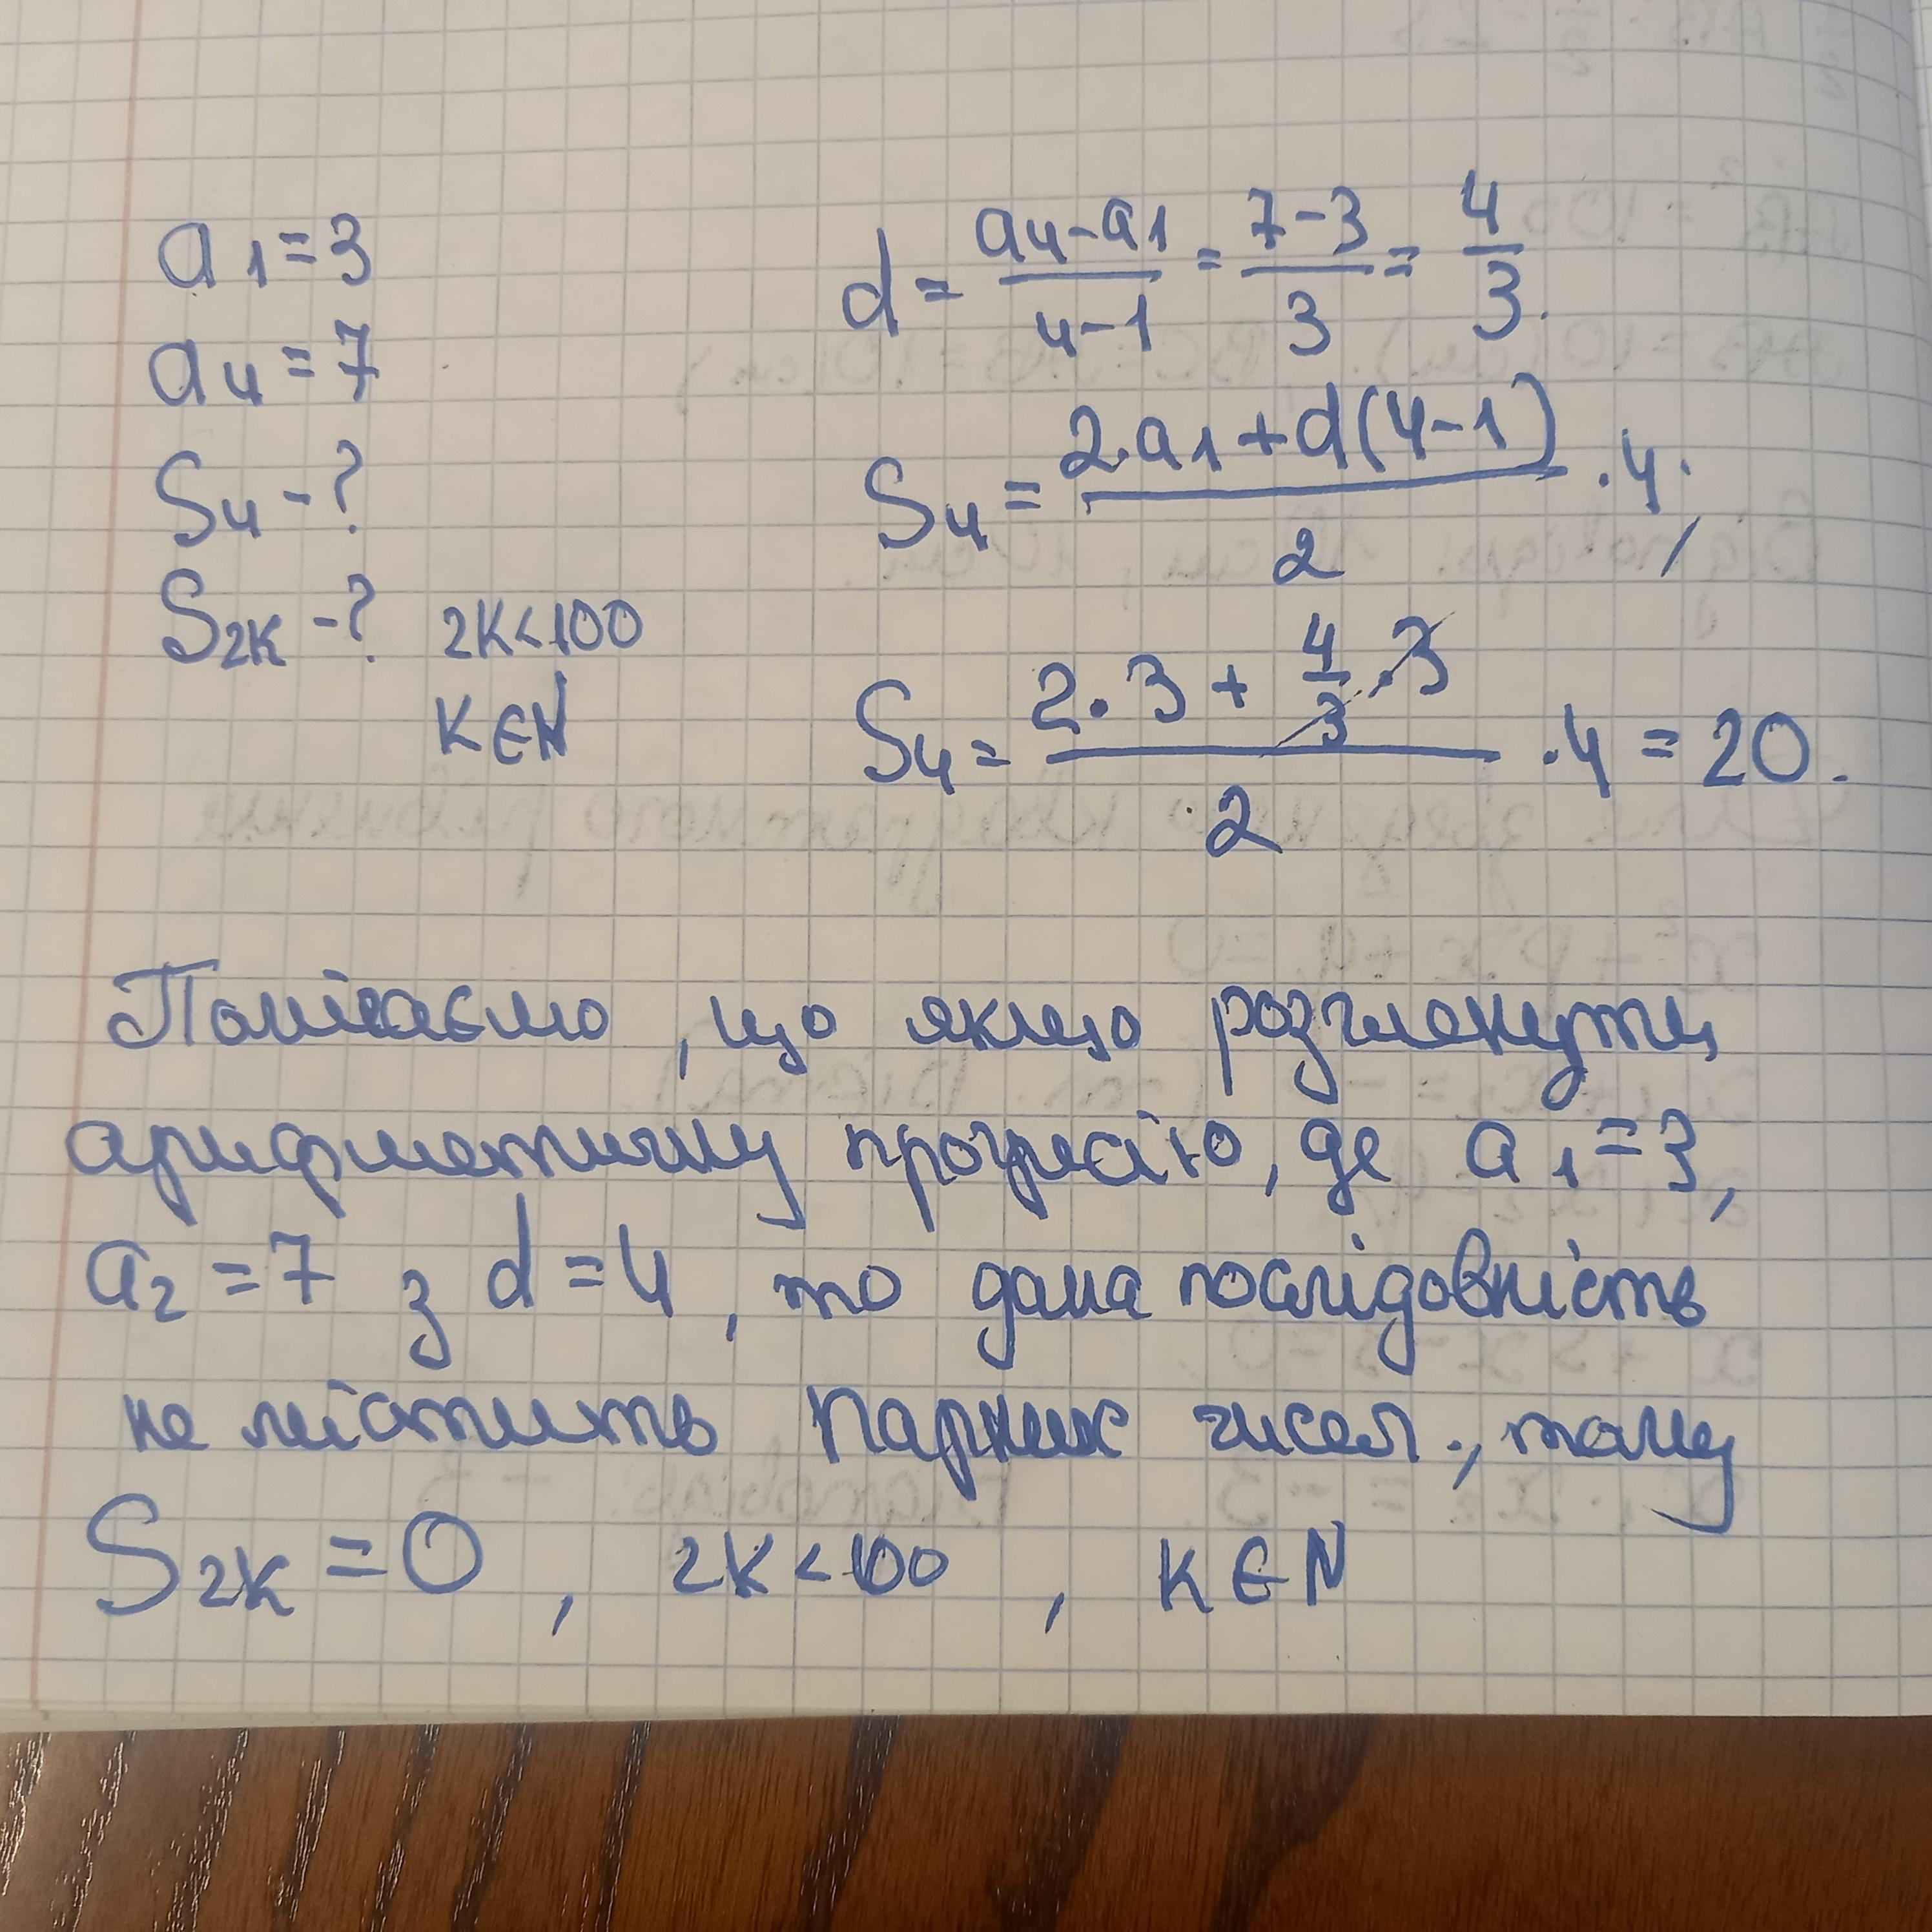 a₁=3
a₄=7
S₄-?
S₂ₖ-? 2K<100
K∈N
d = (a₄-a₁)/(4-1) = (7-3)/3 = 4/3.
S₄ = (2·a₁+d(4-1))/2 ·4;
S₄ = (2·3+4/3·3)/2 ·4 = 20.
Помічаємо, що якщо розглянути
арифметичну прогресію, де a₁=3,
a₂=7 з d=4, то дана послідовність
не містить парних чисел, тому
S₂ₖ=0, 2K<100, K∈N